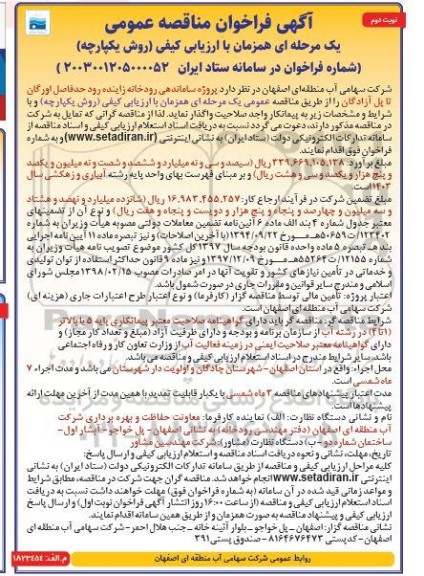 نوبت دوم
آگهی فراخوان مناقصه عمومی
یک مرحله ای همزمان با ارزیابی کیفی (روش یکپارچه)
(شماره فراخوان در سامانه ستاد ایران ۲۰۰۳۰۰۱۲۰۵۰۰۰۰۵۲ )
شرکت سهامی آب منطقه‌ای اصفهان در نظر دارد پروژه ساماندهی رودخانه زاینده رود حدفاصل اورگان
تا پل آزادگان را از طریق مناقصه عمومی یک مرحله ای همزمان با ارزیابی کیفی (روش یکپارچه) و با
شرایط و مشخصات زیر به پیمانکار واجد صلاحیت واگذار نماید. لذا از مناقصه گرانی که تمایل به شرکت
در مناقصه مذکور دارند، دعوت می گردد نسبت به دریافت اسناد استعلام ارزیابی کیفی و اسناد مناقصه از
سامانه تدارکات الکترونیکی دولت (ستاد ایران) به نشانی اینترنتی (www.setadiran.ir) و به شماره
فراخوان فوق اقدام نمایند.
مبلغ برآورد: ۳۳۹.۶۶۹.۱۰۵.۱۳۸ ریال (سیصد و سی و نه میلیارد و ششصد و شصت و نه میلیون و یکصد
و پنج هزار و یکصد و سی و هشت ریال) و بر مبنای فهرست بهای واحد پایه رشته آبیاری و زهکشی سال
۱۴۰۳ است.
مبلغ تضمین شرکت در فرآیند ارجاع کار: ۱۶.۹۸۳.۴۵۵.۲۵۷ ریال (شانزده میلیارد و نهصد و هشتاد
و سه میلیون و چهارصد و پنجاه و پنج هزار و دویست و پنجاه و هفت ریال) و نوع آن از تضمینهای
معتبر جدول شماره ۴ بند الف ماده ۶ آئین نامه تضمین معاملات دولتی مصوبه هیأت وزیران به شماره
۱۲۳۴۰۲/ت۵۰۶۵۹هـ مورخ ۱۳۹۴/۰۹/۲۲ (با آخرین اصلاحات) و نیز تبصره ماده ۱۱ آیین نامه اجرایی
بند هـ تبصره ۵ ماده واحده قانون بودجه سال ۱۳۹۷ کل کشور موضوع تصویب نامه هیأت وزیران به
شماره ۱۲۱۵۵/ت۵۵۲۶۴هـ مورخ ۱۳۹۷/۰۲/۰۹ و نیز ماده ۹ قانون حداکثر استفاده از توان تولیدی
و خدماتی در تأمین نیازهای کشور و تقویت آنها در امر صادرات مصوب ۱۳۹۸/۰۲/۱۵ مجلس شورای
اسلامی و مندرج سایر قوانین و مقررات جاری در صورت شمول باشد.
اعتبار پروژه: تأمین مالی توسط مناقصه گزار (کارفرما) و نوع اعتبار طرح اعتبارات جاری (هزینه ای)
شرکت سهامی آب منطقه‌ای اصفهان است.
شرایط مناقصه گر: مناقصه گر باید دارای گواهینامه صلاحیت معتبر پیمانکاری پایه ۵ یا بالاتر
(۱ تا ۴) در رشته آب از سازمان برنامه و بودجه و دارای ظرفیت آزاد (مبلغ و تعداد کار مجاز) و
دارای گواهینامه معتبر صلاحیت ایمنی در زمینه فعالیت آب از وزارت تعاون کار و رفاه اجتماعی
باشد. سایر شرایط مندرج در اسناد استعلام ارزیابی کیفی و مناقصه می باشد.
محل اجراء: واقع در استان اصفهان - شهرستان چادگان و اولویت دار شهرستان می باشد و مدت اجراء ۷
ماه شمسی است.
مدت اعتبار پیشنهادهای مناقصه ۳ ماه شمسی با یکبار قابلیت تمدید با همین مدت از آخرین مهلت ارائه
پیشنهادها است.
نام و نشانی دستگاه نظارت: الف) نماینده کارفرما: معاونت حفاظت و بهره برداری شرکت
آب منطقه ای اصفهان (دفتر مهندسی رودخانه) به نشانی اصفهان - پل خواجو - آبشار اول -
ساختمان شماره دو - ب) دستگاه نظارت (مشاور): شرکت مهندسین مشاور
تاریخ، مهلت، نشانی و نحوه دریافت اسناد مناقصه و استعلام ارزیابی کیفی و ارسال پاسخ:
کلیه مراحل ارزیابی کیفی و مناقصه از طریق سامانه تدارکات الکترونیکی دولت (ستاد ایران) به نشانی
اینترنتی www.setadiran.ir انجام خواهد شد. مناقصه گران جهت شرکت در مناقصه، مطابق شرایط
و مواعد زمانی قید شده در آن سامانه (به شماره فراخوان فوق) مهلت خواهند داشت نسبت به دریافت
اسناد استعلام ارزیابی کیفی و مناقصه (از ساعت ۱۶:۰۰ روز انتشار آگهی فراخوان نوبت اول) و ارسال پاسخ
ارزیابی کیفی و پیشنهاد مناقصه به صورت همزمان و از طریق همین سامانه اقدام نمایند.
نشانی مناقصه گزار: اصفهان - پل خواجو - بلوار آئینه خانه - جنب هلال احمر - شرکت سهامی آب منطقه ای
اصفهان - کدپستی ۸۱۶۴۶۷۶۴۷۳ - صندوق پستی ۳۹۱
روابط عمومی شرکت سهامی آب منطقه ای اصفهان
م.الف: ۱۸۲۳۴۵۴